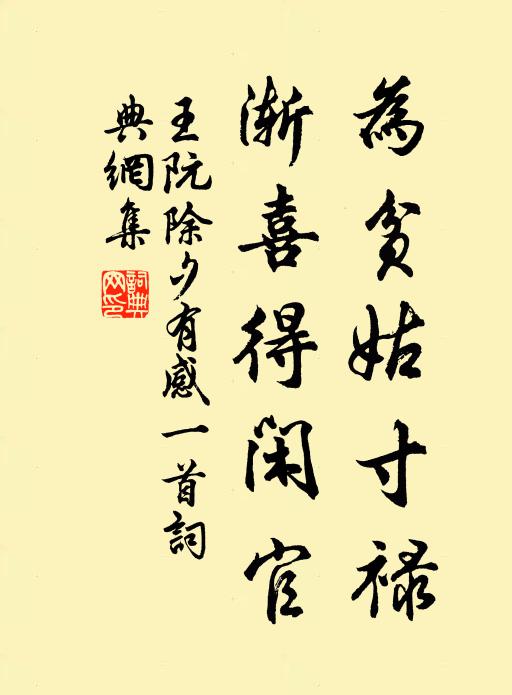 為貧姑寸祿
漸喜得閑官
王阮除夕有感一首詞
典網集
詞典網印